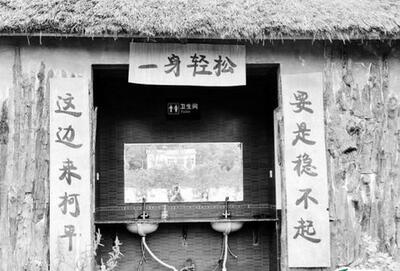 一身轻松
卫生间
要是稳不起
这边来柯平